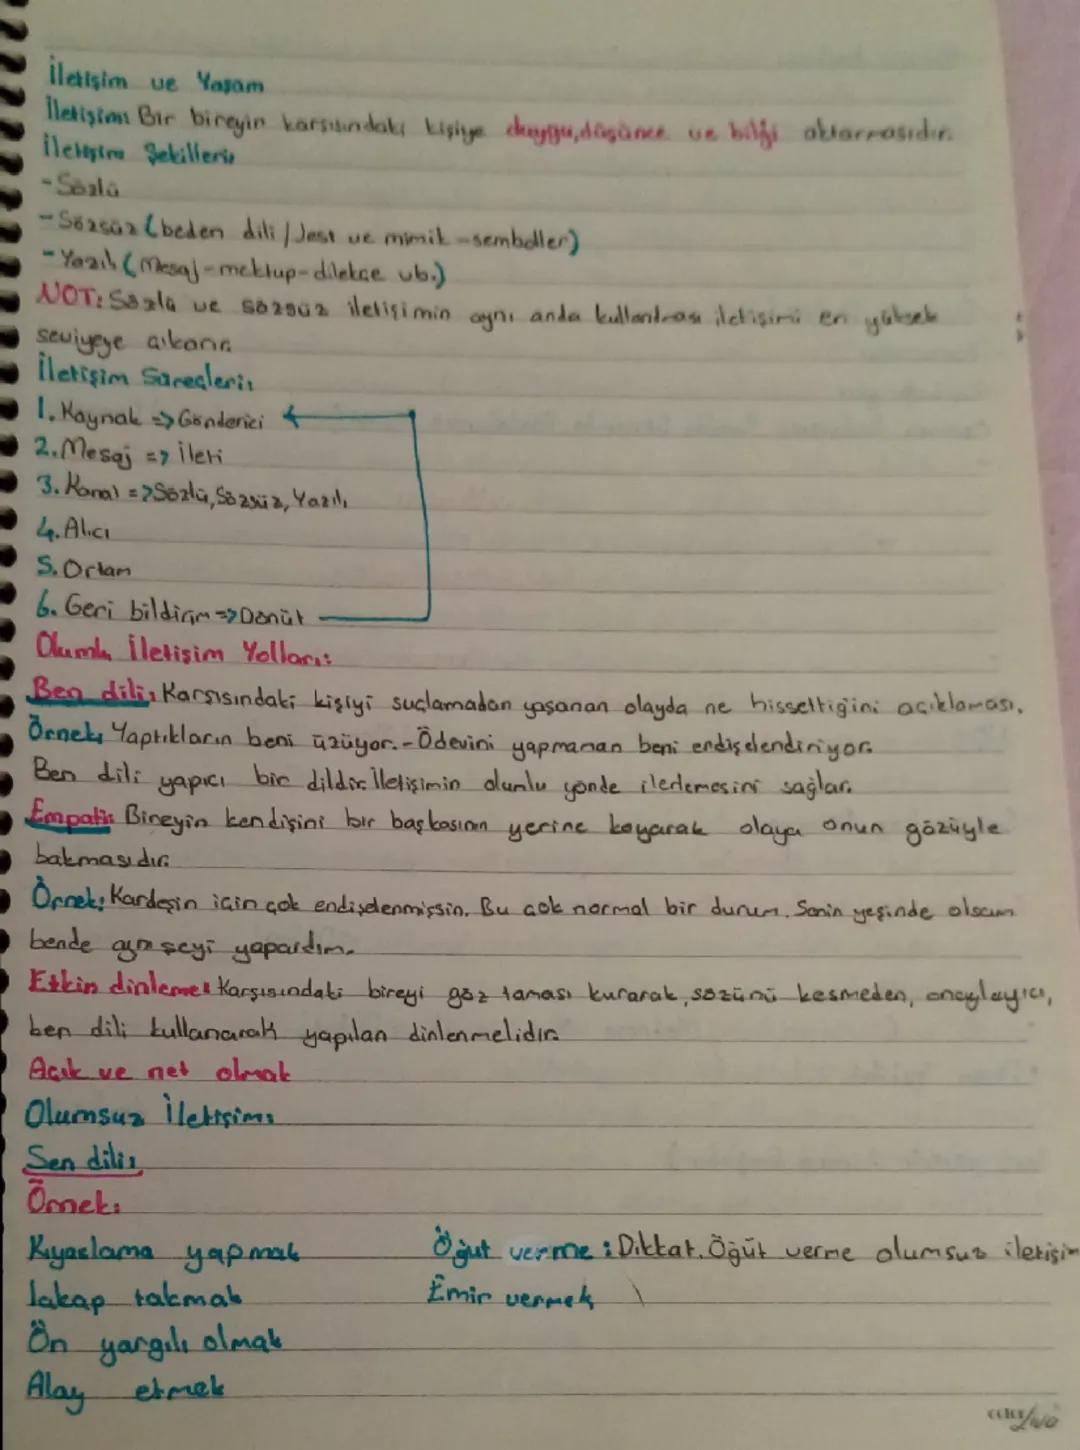 İletişim ve Yaşam
İletişim: Bir bireyin karşısındaki kişiye duygu, düşünce ve bilgi aktarmasıdır.
İletişim Şekilleri:
- Sözlü
- Sözsüz (beden dili / Jest ve mimik - semboller)
- Yazılı (Mesaj - mektup - dilekçe vb.)
NOT: Sözlü ve sözsüz iletişimin aynı anda kullanılması iletişimi en yüksek
seviyeye çıkarır.
İletişim Süreçleri:
1. Kaynak => Gönderici
2. Mesaj => İleti
3. Kanal => Sözlü, Sözsüz, Yazılı
4. Alıcı
5. Ortam
6. Geri bildirim => Dönüt
Olumlu İletişim Yolları:
Ben dili: Karşısındaki kişiyi suçlamadan yaşanan olayda ne hissettiğini açıklaması.
Örnek: Yaptıkların beni üzüyor. - Ödevini yapmaman beni endişelendiriyor.
Ben dili yapıcı bir dildir. İletişimin olumlu yönde ilerlemesini sağlar.
Empati: Bireyin kendisini bir başkasının yerine koyarak olaya onun gözüyle
bakmasıdır.
Örnek: Kardeşin için çok endişelenmişsin. Bu çok normal bir durum. Senin yeşinde olsam
bende aynı şeyi yapardım.
Etkin dinleme: Karşısındaki bireyi göz taması kurarak, sözünü kesmeden, onaylayıcı,
ben dili kullanarak yapılan dinlenmelidir.
Açık ve net olmak
Olumsuz İletişim:
Sen dili:
Örnek:
Kıyaslama yapmak
Öğüt verme : Dikkat. Öğüt verme olumsuz iletişim
lakap takmak
Emir vermek
Ön yargılı olmak
Alay etmek